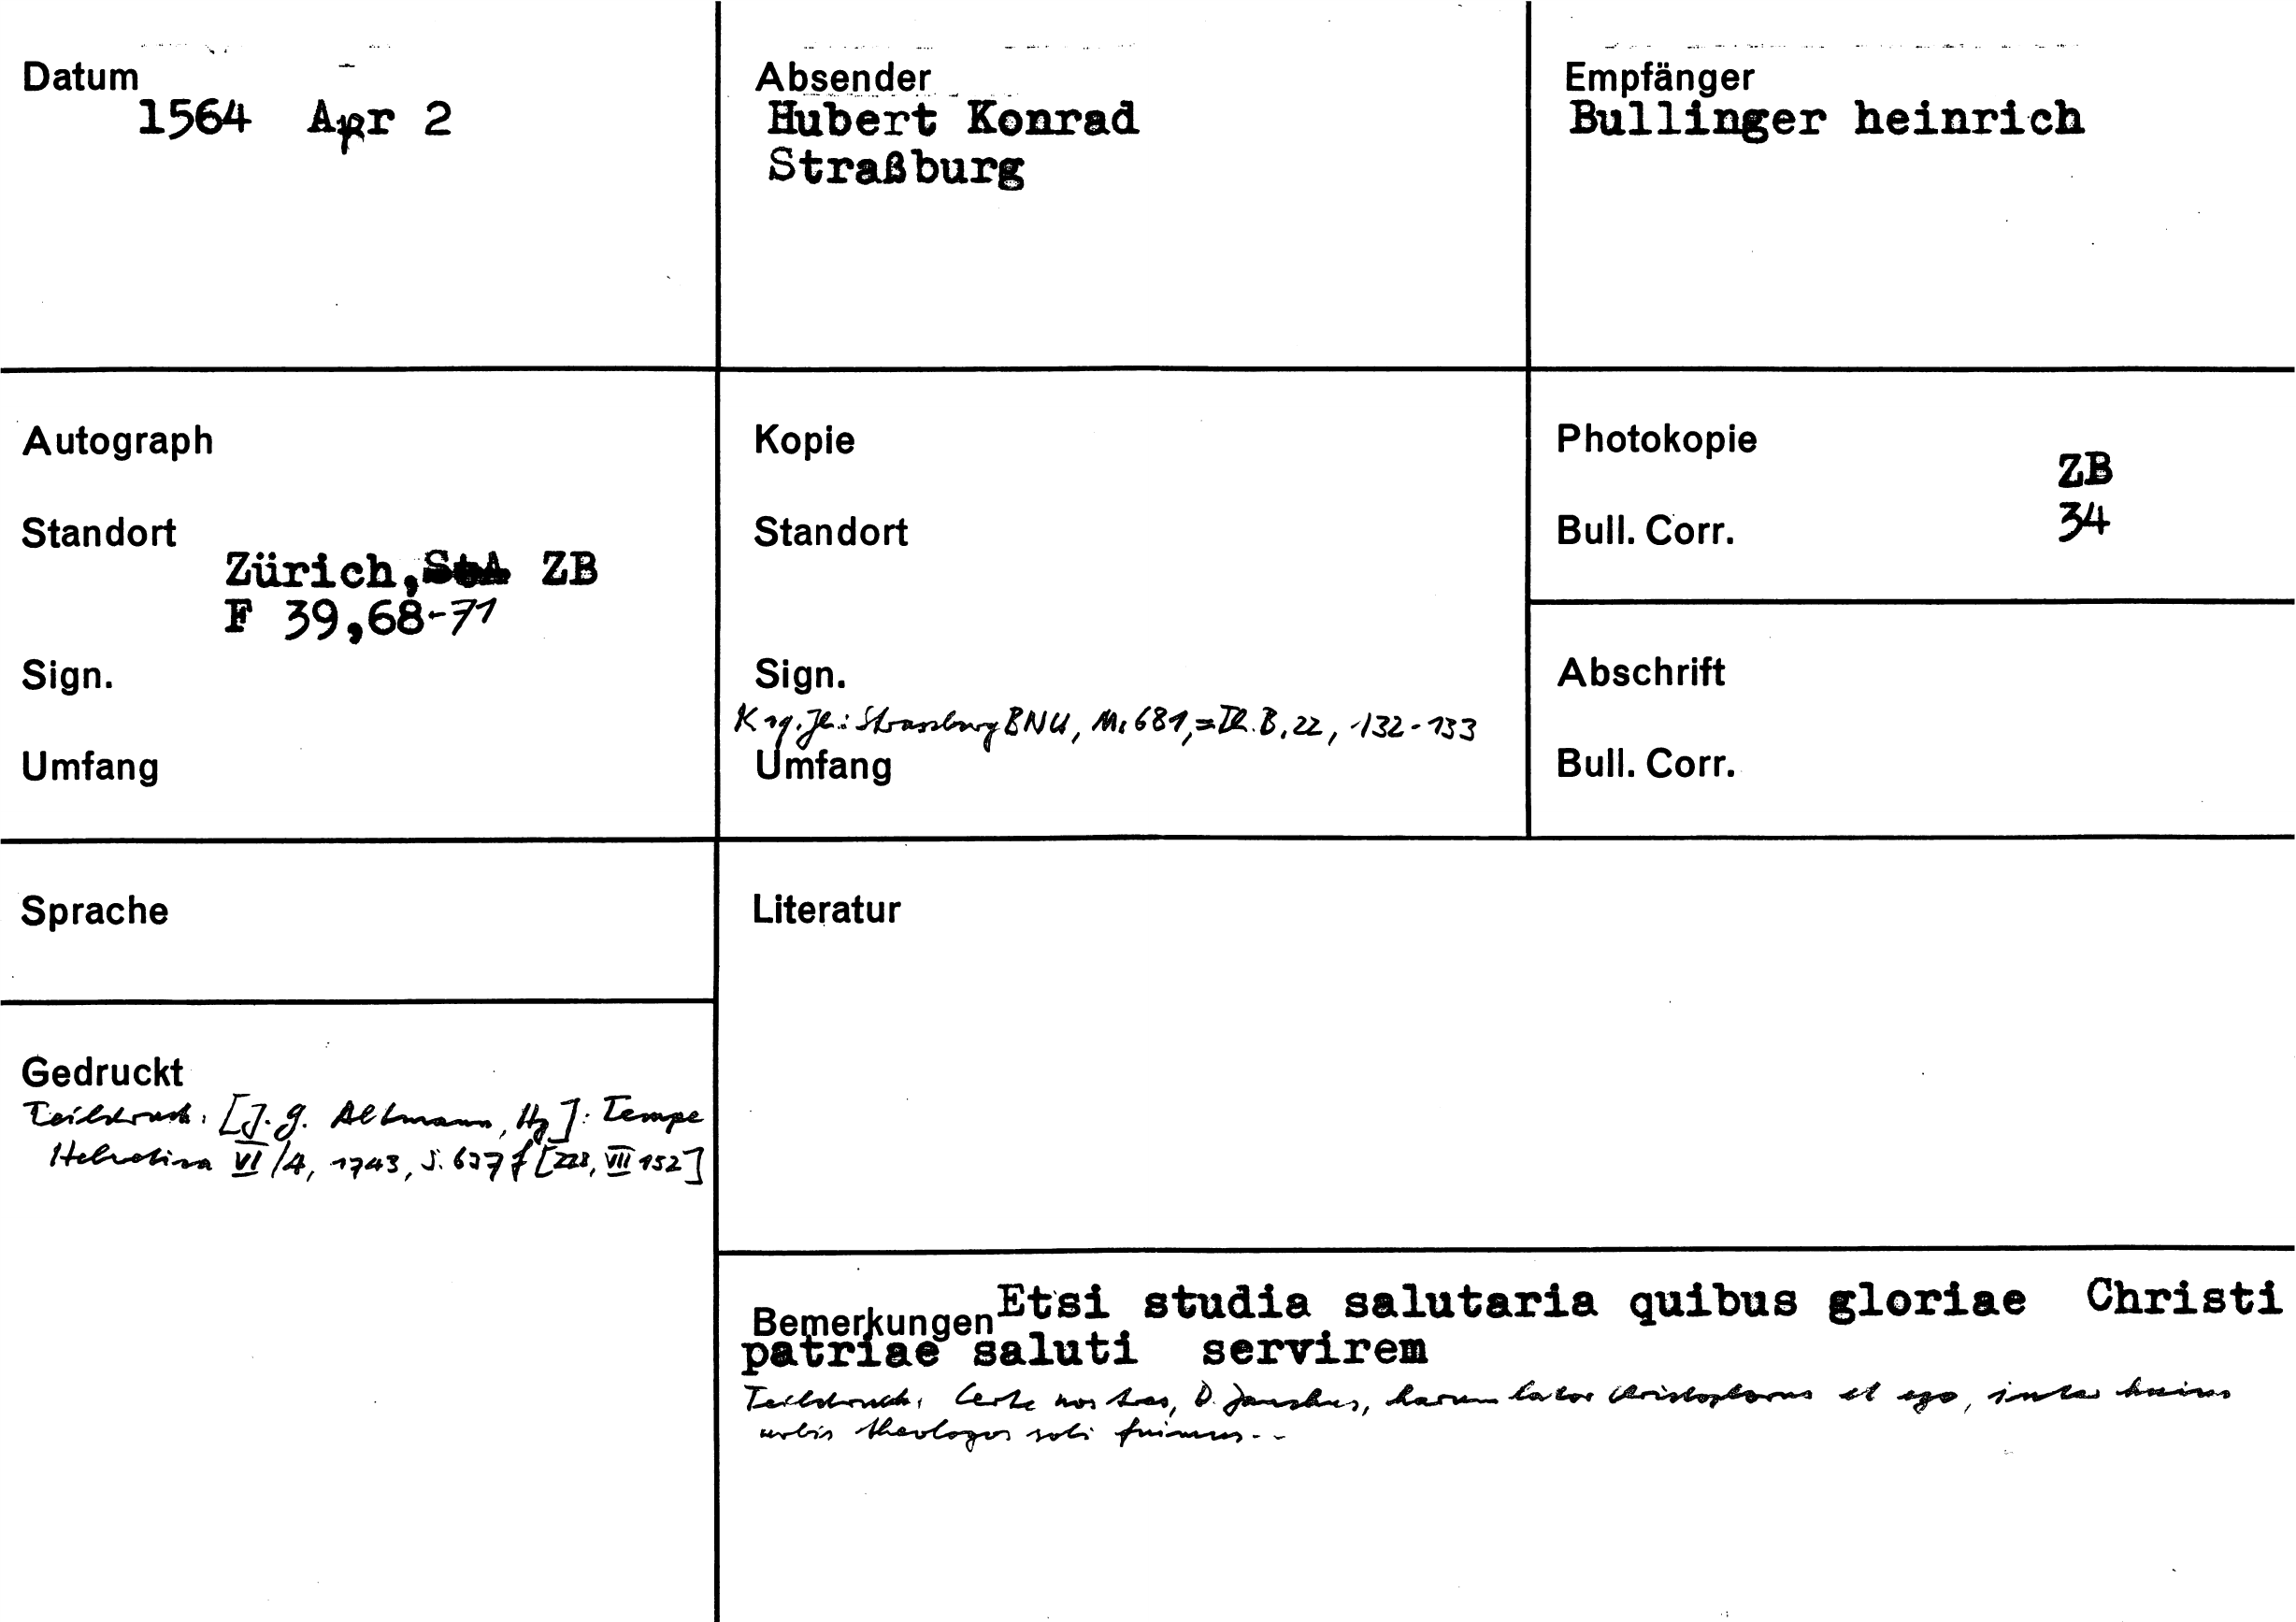 Datum
1564 Apr 2
Absender
Hubert Konrad
Straßburg
Empfänger
Bullinger heinrich
Autograph
Standort
Zürich, StA ZB
F 39,68-71
Sign.
Umfang
Kopie
Standort
Sign.
Strassburg BNU, Ms 681, = Th. B, 22, 132-133
Umfang
Photokopie
ZB
Bull. Corr.
34
Abschrift
Bull. Corr.
Sprache
Literatur
Gedruckt
Teildruck: [J. G. Altmann, Hg]: Tempe
Helvetica VI/4, 1743, S. 637 f [ZZB, VII 152]
Bemerkungen Etsi studia salutaria quibus gloriae Christi
patriae saluti servirem
Teildruck: Certe nos tres, D. Zanchus, harum lator Christophorus et ego, inter huius
urbis theologos soli fuimus..